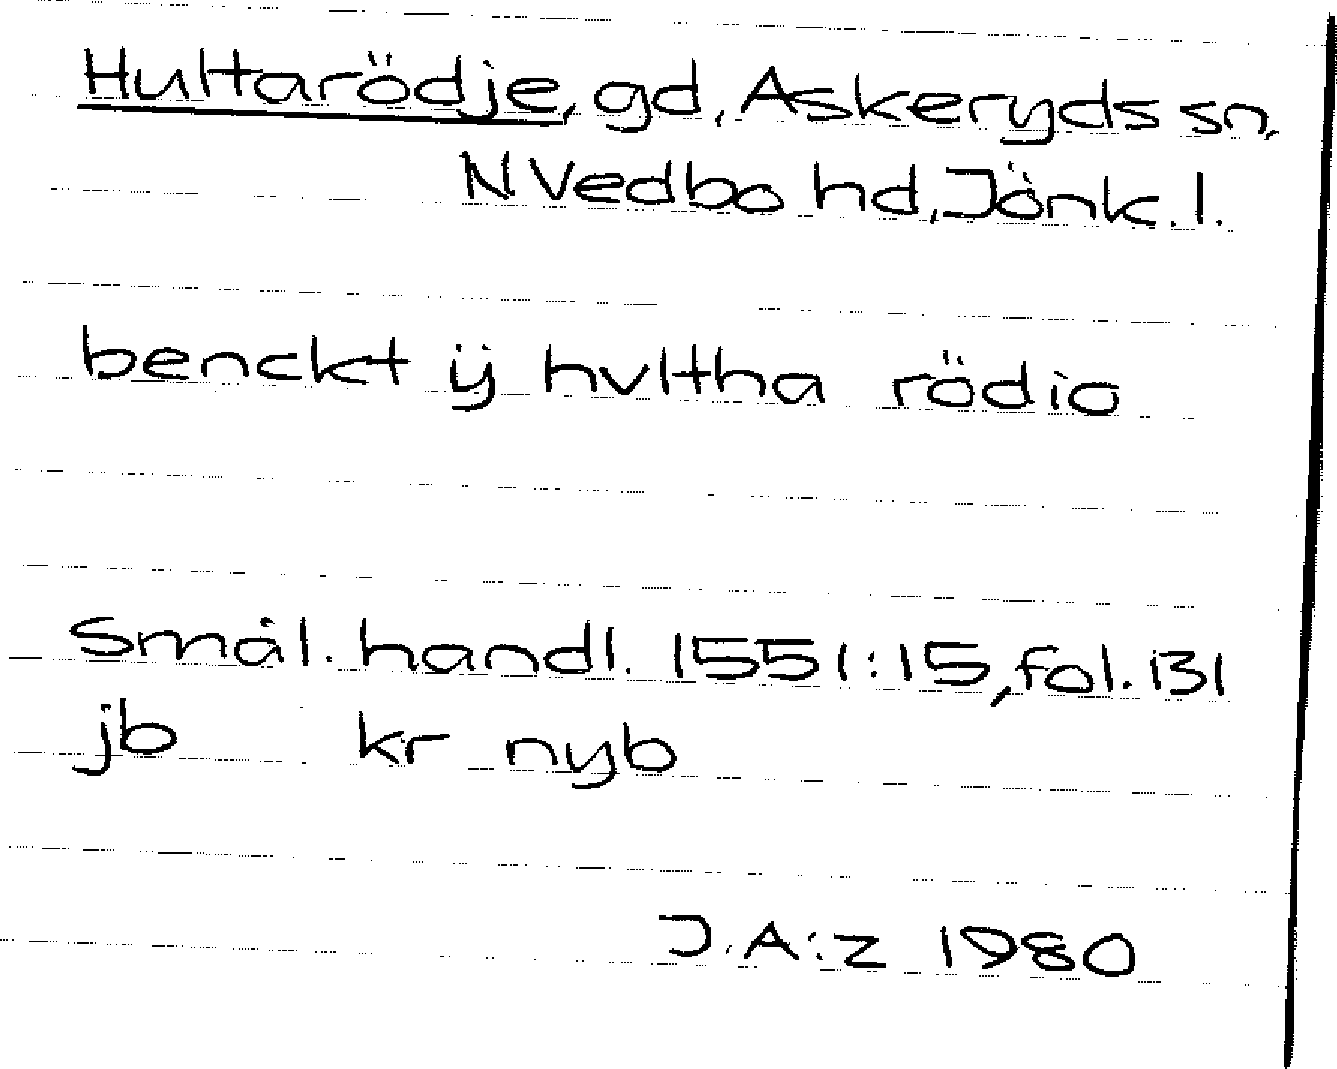 Hultarödje, gd, Askeryds sn,
N Vedbo hd, Jönk. l.
benckt ÿ hvltha rödio
Smål. handl. 1551:15, fol. 131
jb kr nyb
J.A:z 1980